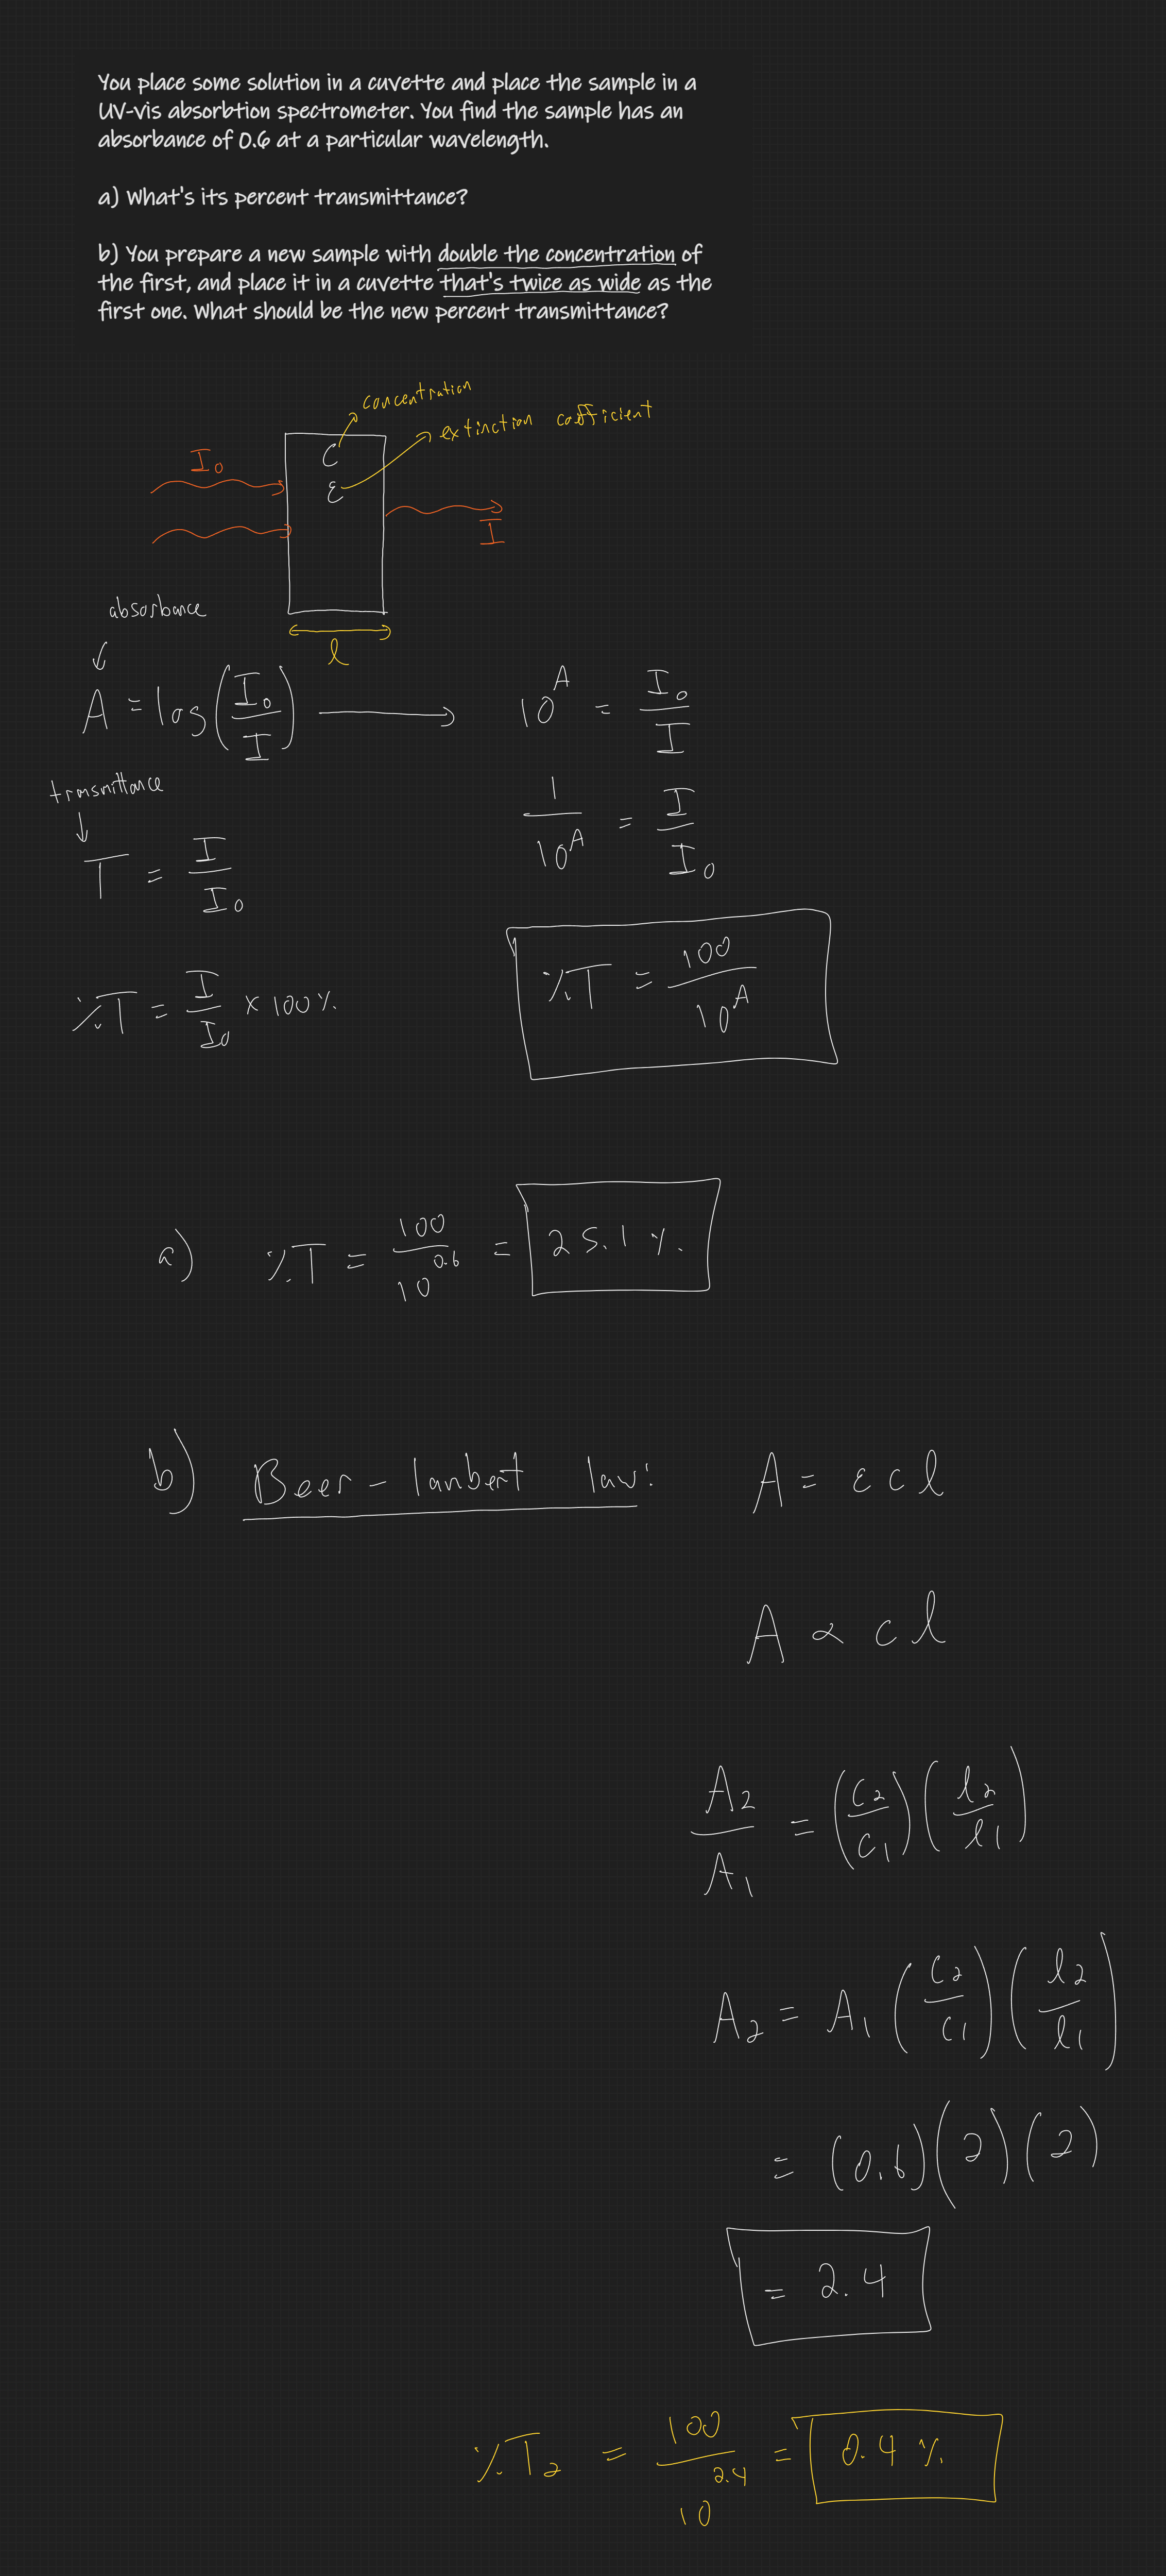 You place some solution in a cuvette and place the sample in a
UV-vis absorbtion spectrometer. You find the sample has an
absorbance of 0.6 at a particular wavelength.
a) What's its percent transmittance?
b) You prepare a new sample with double the concentration of
the first, and place it in a cuvette that's twice as wide as the
first one. What should be the new percent transmittance?
concentration
extinction coefficient
C
I₀
ε
I
absorbance
l
A = log(I₀/I)
10^A = I₀/I
trasmittance
1/10^A = I/I₀
T = I/I₀
%T = I/I₀ × 100%
%T = 100/10^A
a) %T = 100/10^0.6 = 25.1 %
b) Beer - lambert law: A = ε c l
A ∝ c l
A₂/A₁ = (C₂/C₁)(l₂/l₁)
A₂ = A₁ (C₂/C₁)(l₂/l₁)
= (0.6)(2)(2)
= 2.4
%T₂ = 100/10^2.4 = 0.4 %